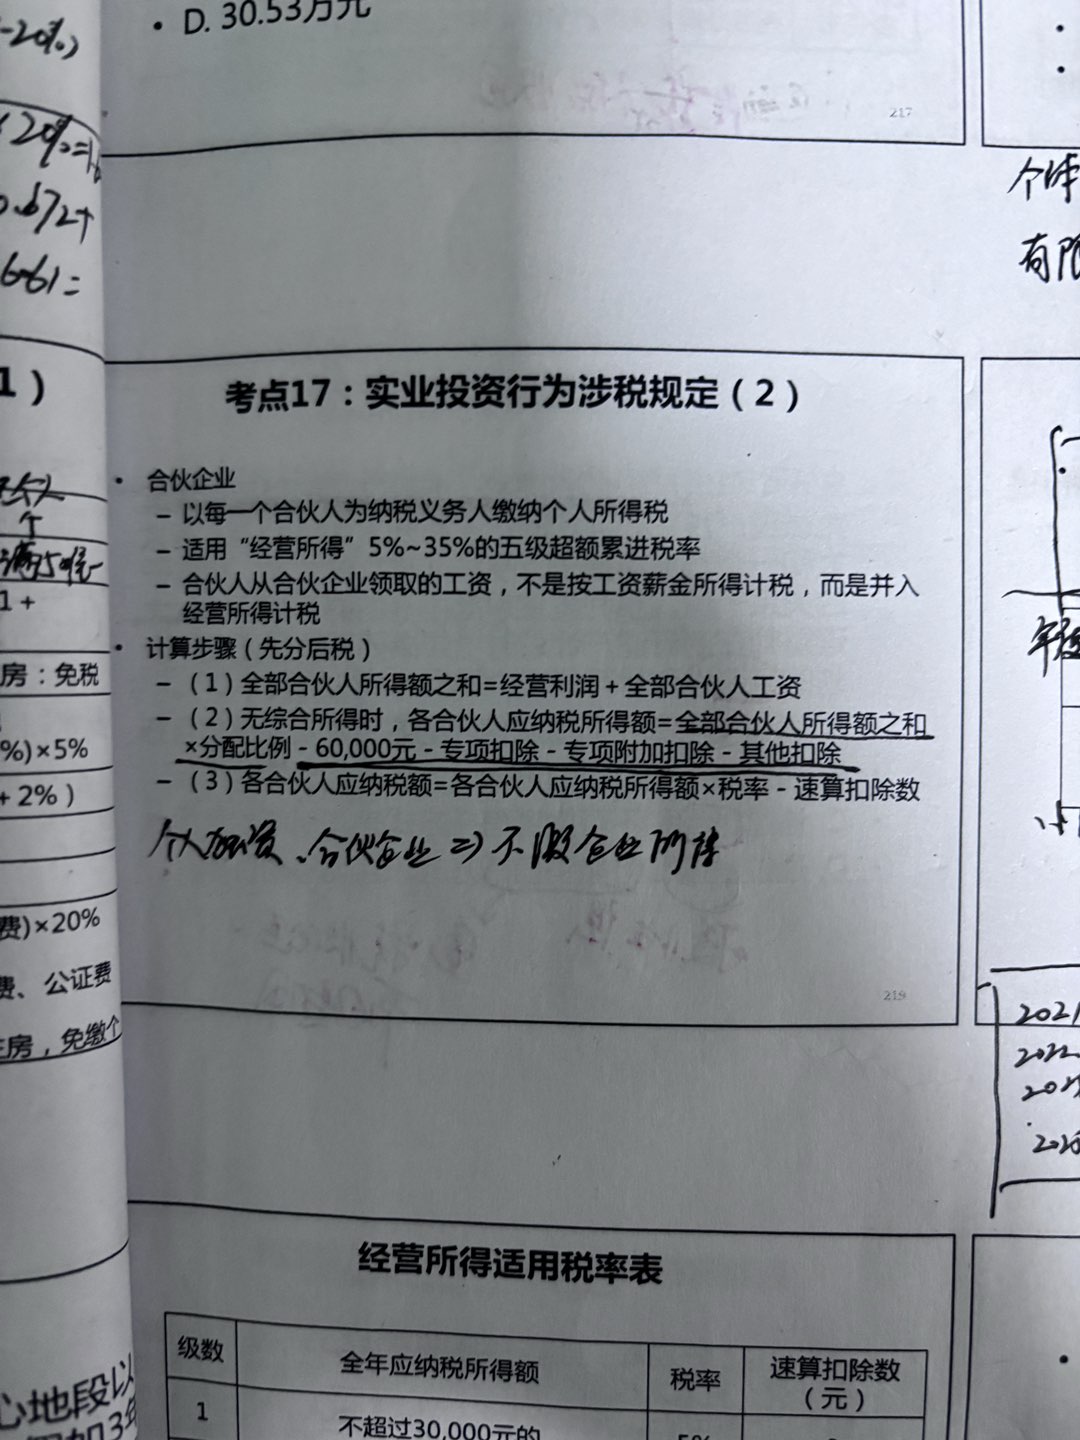 • D. 30.53万元
217
-20%)
20%=1.6
0.672+
661=
个体
有限
1）
考点17：实业投资行为涉税规定（2）
• 合伙企业
– 以每一个合伙人为纳税义务人缴纳个人所得税
– 适用“经营所得”5%~35%的五级超额累进税率
– 合伙人从合伙企业领取的工资，不是按工资薪金所得计税，而是并入
经营所得计税
• 计算步骤（先分后税）
– （1）全部合伙人所得额之和=经营利润+全部合伙人工资
– （2）无综合所得时，各合伙人应纳税所得额=全部合伙人所得额之和
×分配比例－60,000元－专项扣除－专项附加扣除－其他扣除
– （3）各合伙人应纳税额=各合伙人应纳税所得额×税率－速算扣除数
个人独资、合伙企业⇒不缴企业所得
219
个
1+
房：免税
%)×5%
+2%）
费)×20%
费、公证费
房，免缴个
2021
2022
经营所得适用税率表
级数 全年应纳税所得额 税率 速算扣除数
（元）
1 不超过30,000元的 5%
心地段以